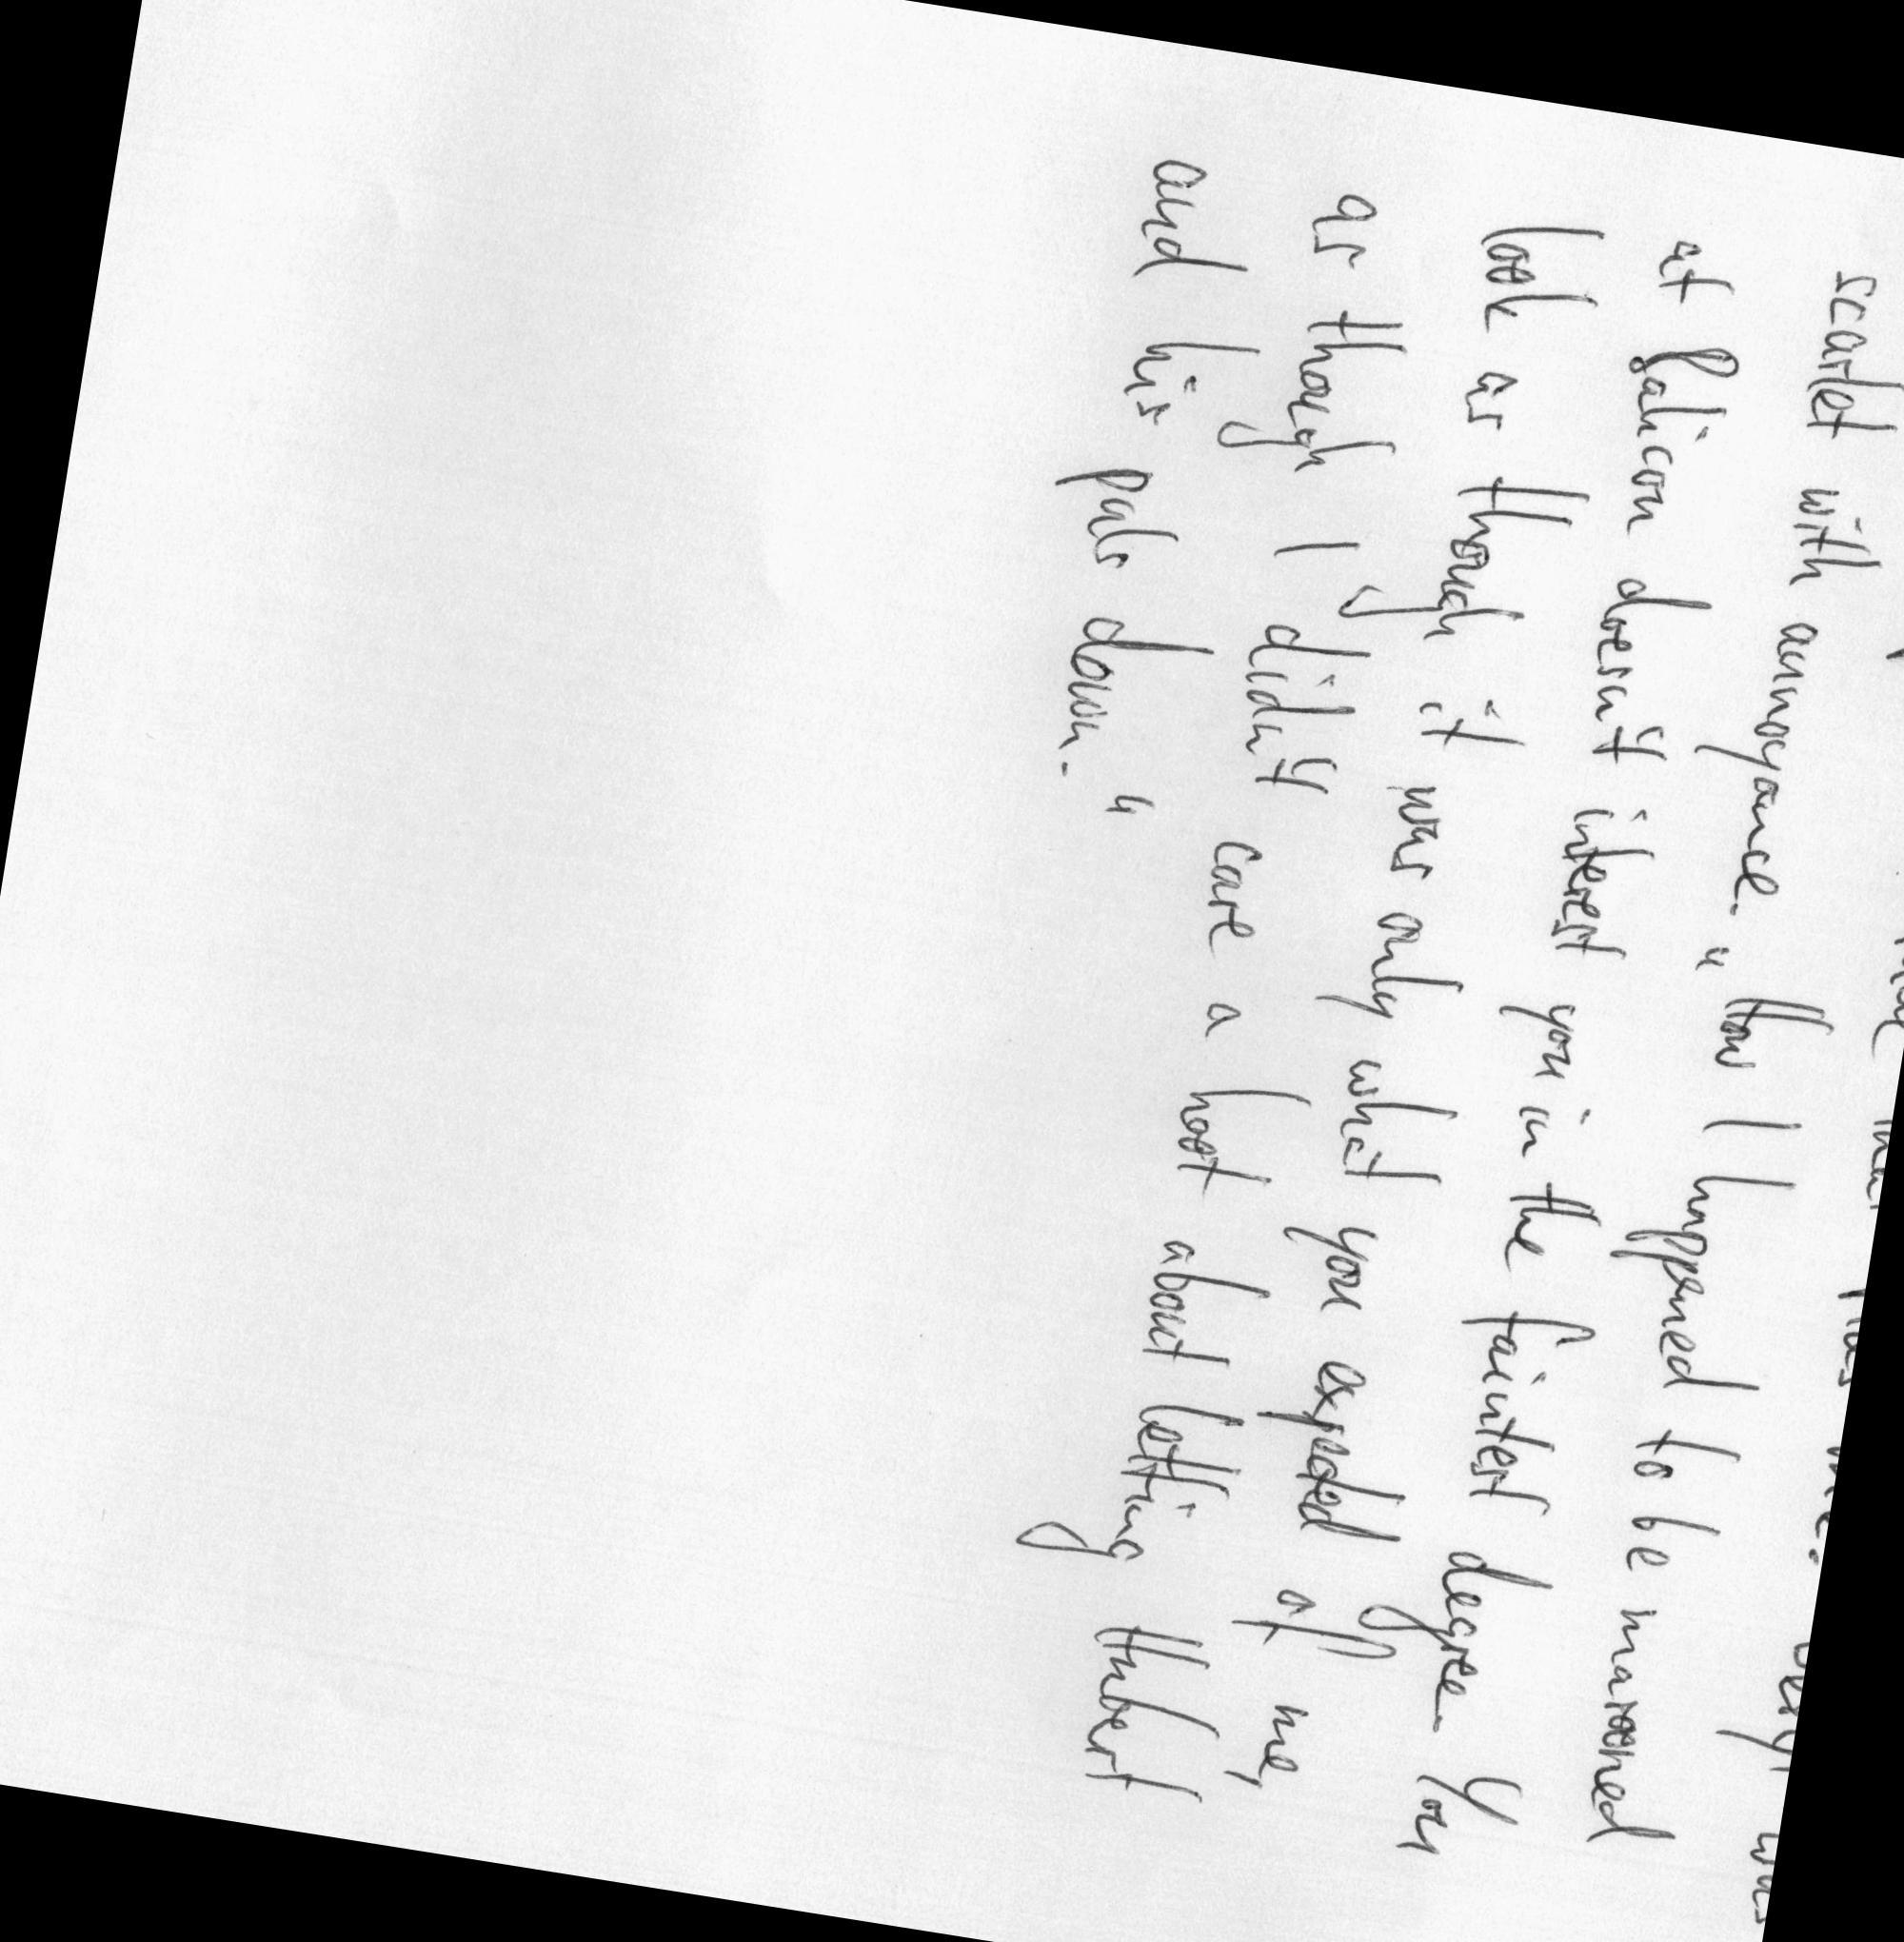 was
scarlet with annoyance. "How I happened to be marooned
at Galicon doesn't interest you in the faintest degree. You
look as though it was only what you expected of me,
as though I didn't care a hoot about letting Hubert
and his pals down."